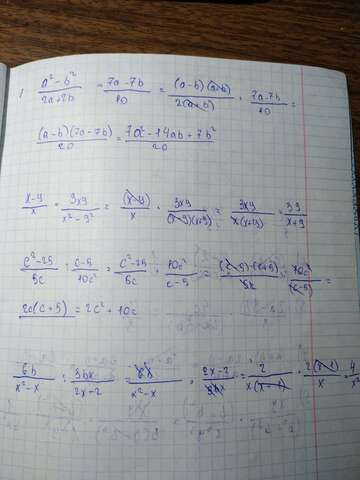 1 (a² - b²)/(2a + 2b) = (7a - 7b)/10 = ((a - b)(a - b))/(2(a + b)) · (7a - 7b)/10 =
((a - b)(7a - 7b))/20 = (7a² - 14ab + 7b²)/20
(x - y)/x · (3xy)/(x² - y²) = (x - y)/x · (3xy)/((x - y)(x + y)) = (3xy)/(x(x + y)) = (3y)/(x + y)
(c² - 25)/(5c) : (c - 5)/(10c²) = (c² - 25)/(5c) · (10c²)/(c - 5) = ((c - 5)·(c + 5))/(5c) · (10c²)/(c - 5) =
2c(c + 5) = 2c² + 10c
(6b)/(x² - x) : (3bx)/(2x - 2) = (6b)/(x² - x) · (2x - 2)/(3bx) = 2/(x(x - 1)) · (2(x - 1))/x = 4/x²